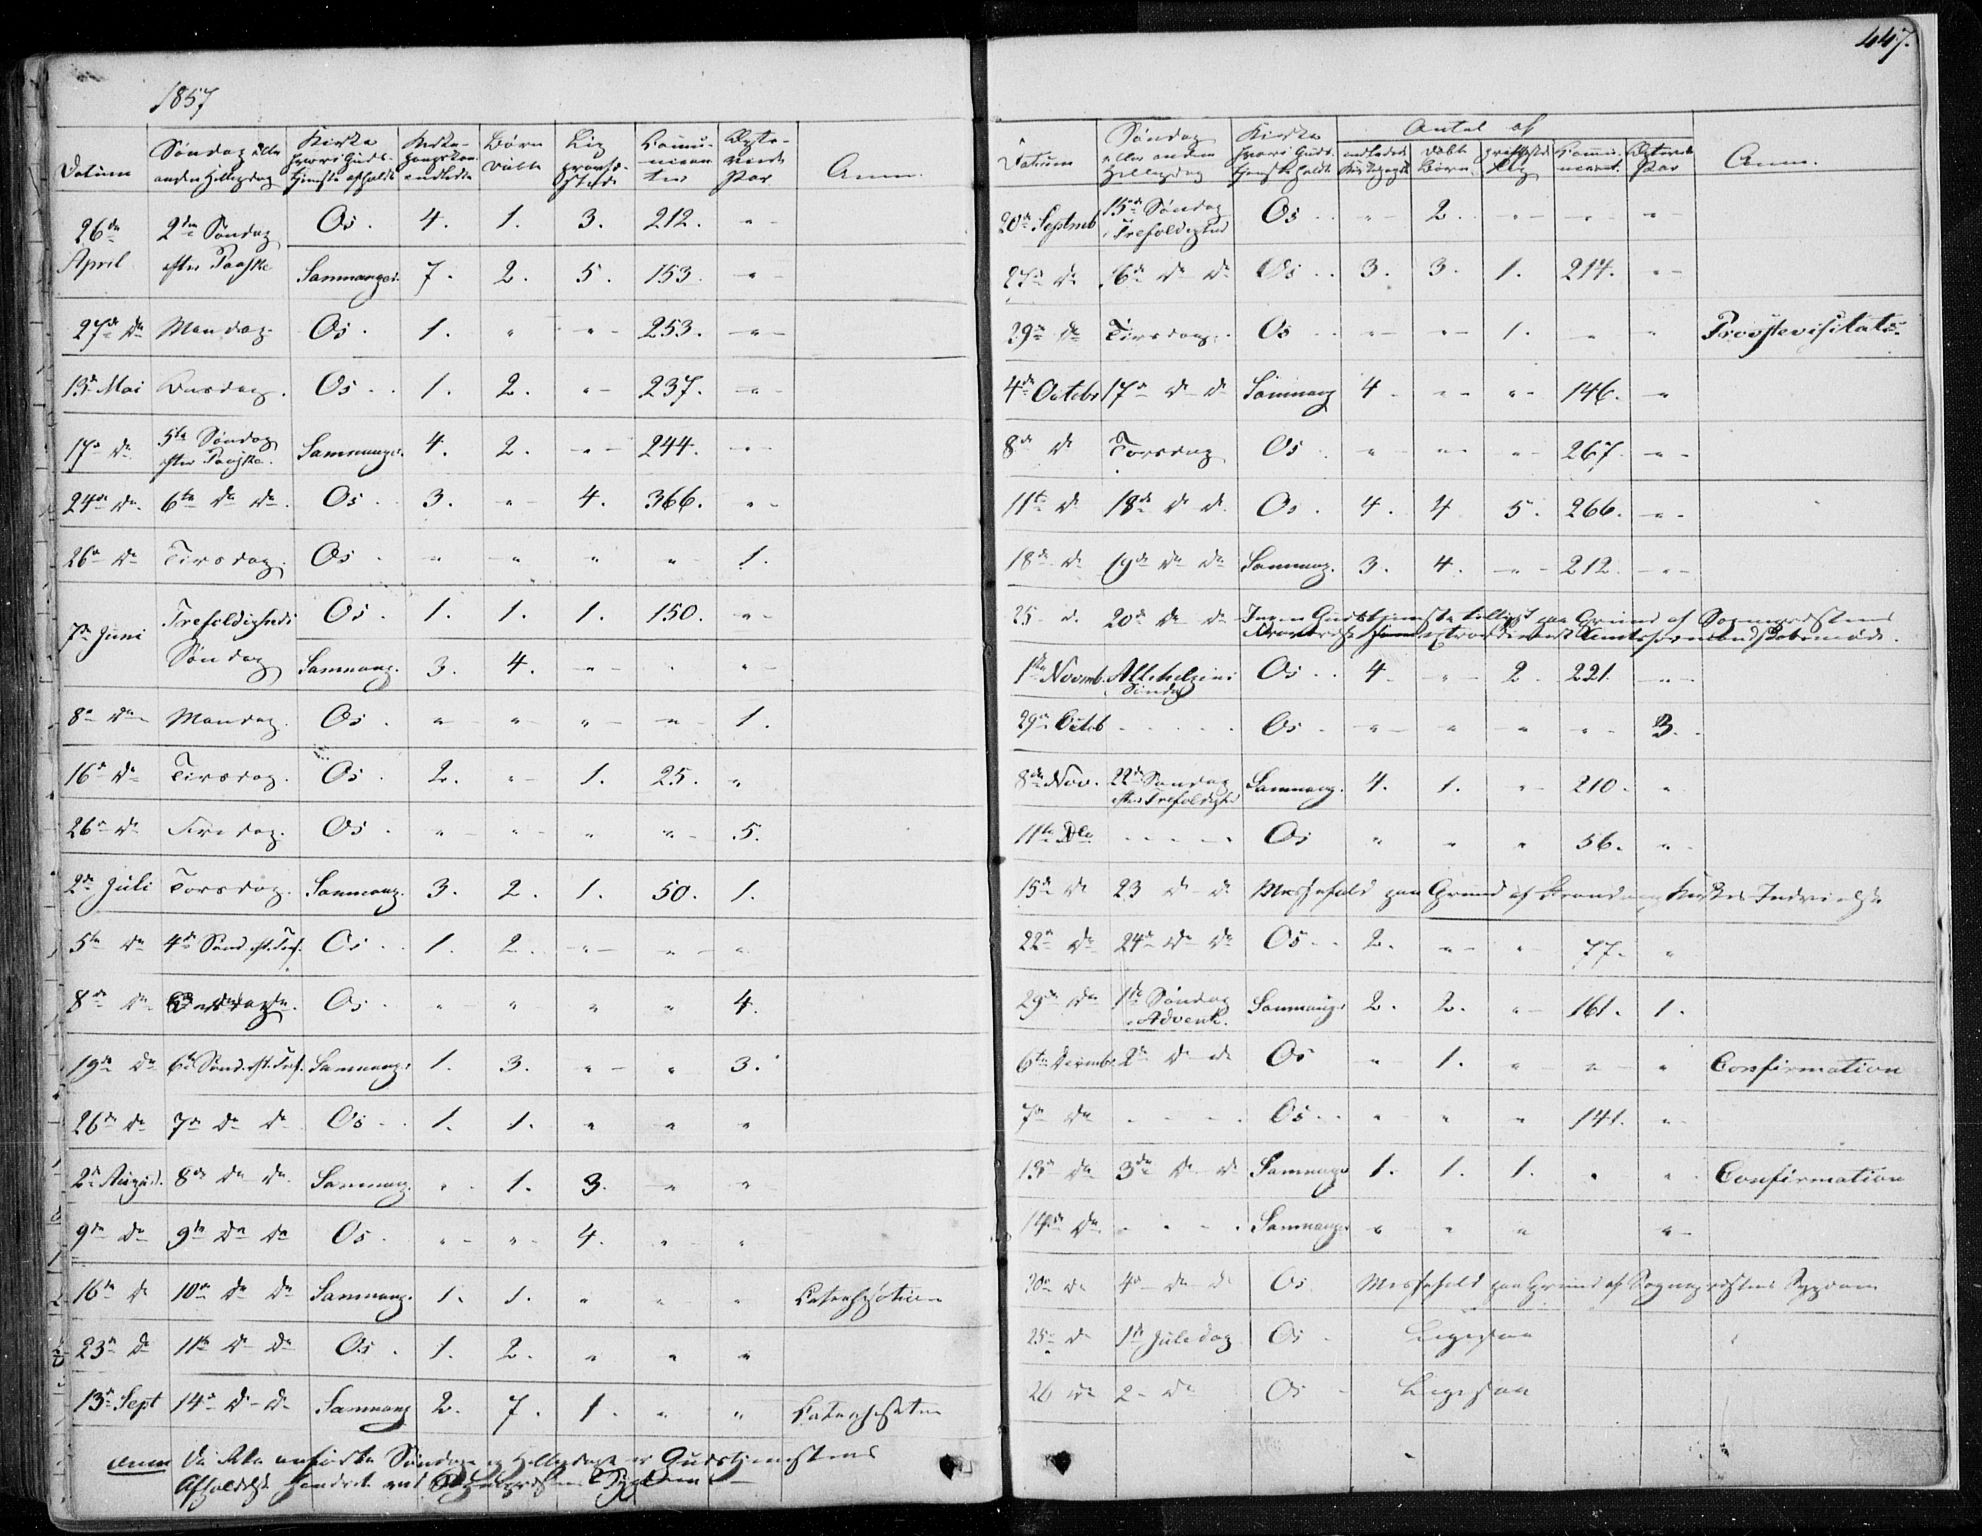 447.
1857
Datum | Søndag eller anden Helligdag | Kirke hvori Guds- tjeneste afholdt | Kirke- gangskon. indledte | Børn døbte | Lig | Commu- nican- ter | Par | Anm.
26de April | 2den Søndag efter Paaske | Os. | 4. | 1. | 3. | 212. | "
Samnanger. | 7. | 2. | 5. | 153. | "
27de do | Mandag. | Os. | 1. | " | " | 253. | "
13de Mai | Onsdag. | Os | 1. | 2. | " | 237. | "
17de do | 5te Søndag efter Paaske. | Samnanger. | 4. | 2. | " | 244. | "
24de do | 6te do do. | Os | 3. | " | 4. | 366. | "
26de do | Tirsdag. | Os | " | " | " | " | 1.
7de Juni | Trefoldigheds Søndag | Os | 1. | 1. | 1. | 150. | "
Samnang. | 3. | 4. | " | " | "
8de do | Mandag. | Os. | " | " | " | " | 1.
16de do | Tirsdag. | Os. | 2. | " | 1. | 25. | "
26de do | Fredag. | Os. | " | " | " | " | 5.
2de Juli | Torsdag. | Samnang. | 3. | 2. | 1. | 50. | 1.
5te do | 4de Sønd. eft. Tref. | Os | 1. | 2. | " | " | "
8de do | Onsdag. | Os. | " | " | " | " | 4.
19de do | 6te Sønd. eft. Tref. | Samnang. | 1. | 3. | " | " | 3.
26de do | 7de do do | Os | 1. | 1. | " | " | "
2de August. | 8de do do. | Samnang. | " | 1. | 3. | " | "
9de do | 9de do do | Os. | " | " | 4. | " | "
16de do | 10de do do | Samnang. | 1. | 1. | " | " | " | Catechisation
23de do | 11te do do | Os. | 1. | 2. | " | " | "
13de Sept | 14de do do | Samnang | 2. | 7. | 1. | " | " | Catechisation
Anm Da ikke anførte Søndage og Helligdage er Gudstjenestens
Afholdelse hindret ved Sognepræstens Sygdom
Datum | Søndag eller anden Helligdag | Kirke hvori Guds- tjeneste holdt | Antal af | indledede | døbte Børn | Lig | Commu- nicant. | Par | Anm.
20de Septemb | 15de Søndag Trefoldighed | Os | " | 2. | " | " | "
27de do | 16de do do | Os | 3. | 3. | 1. | 214. | "
29de do | Tirsdag. | Os | " | " | 1. | " | " | Provstevisitats.
4de Octobr | 17de do do | Samnang | 4 | " | " | 146. | "
8de do | Torsdag | Os | " | " | " | 267. | "
11te do | 18de do do | Os. | 4. | 4 | 5. | 266. | "
18de do | 19de do do | Samnang. | 3. | 4. | " | 212. | "
25 do | 20de do do | Ingen Gudstjeneste paa Grund af Sognepræstens
1ste Novmb. | Allehelgens Søndag | Os | 4. | " | 2. | 221. | "
29de Octob | Os. | " | " | " | " | 3.
8de Nov. | 22de Søndag efter Trefoldighed | Samnang. | 4. | 1. | " | 210. | "
11te do | Os | " | " | " | 56. | "
15de do | 23 do do | Messefald paa Grund af Strandvig Kirkes Indvielse
22de do | 24de do do | Os | 2. | " | " | 77. | "
29de do | 1ste Søndag i Advent. | Samnang. | 2. | 2. | " | 161. | 1.
6te Decembr | 2den do do | Os | " | 1. | " | " | " | Confirmation
7de do | Os | " | " | " | 141. | "
13de do | 3de do do | Samnang | 1. | 1. | 1. | " | " | Confirmation
14de do | Samnang. | " | " | " | "
20de do | 4de do do | Os | Messefald paa Grund af Sognepræstens Sygdom
25de do | 1ste Juledag | Os | Ligesaa
26 do | 2 do | Os | Ligesaa